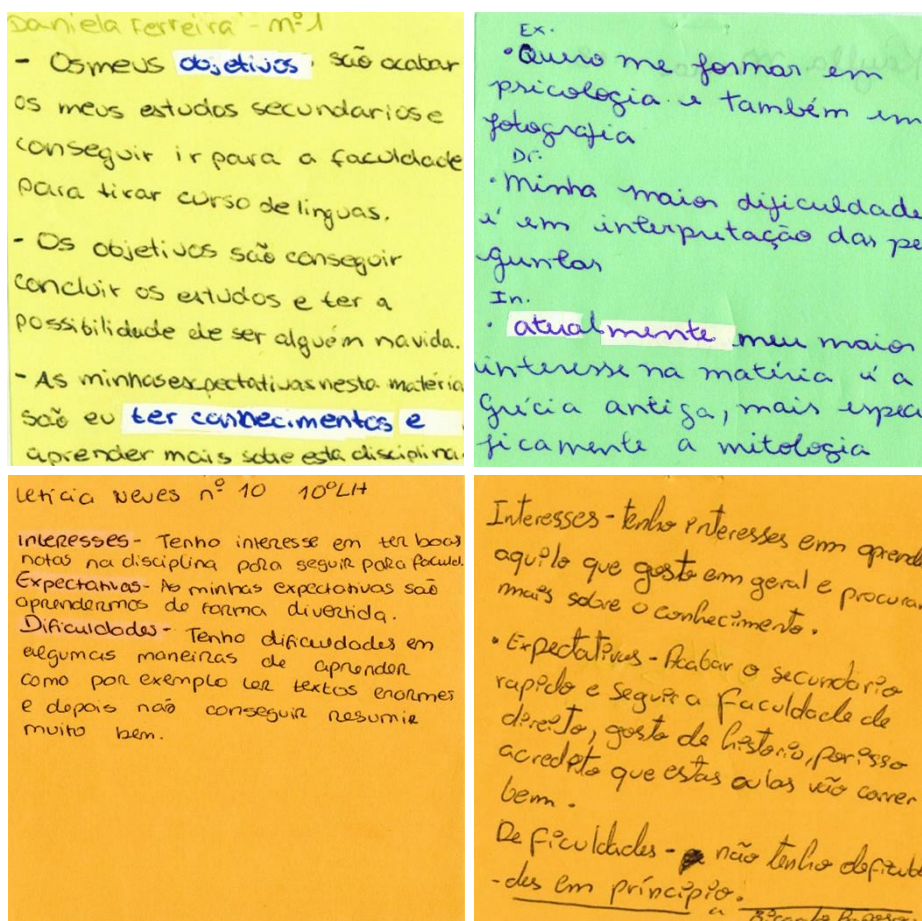 Daniela Ferreira - nº1
- Os meus objetivos são acabar
os meus estudos secundarios e
conseguir ir para a faculdade
para tirar curso de linguas.
- Os objetivos são conseguir
concluir os estudos e ter a
possibilidade de ser alguém na vida.
- As minhas expectativas nesta matéria
são eu ter conhecimentos e
aprender mais sobre esta disciplina.
Ex.
• Quero me formar em
psicologia e também em
fotografia
Dr.
• Minha maior dificuldade
é em interpretação das pe
guntas
In.
• atualmente meu maior
interesse na matéria é a
Grécia antiga, mais especi
ficamente a mitologia
Letícia Neves nº 10 10ºLH
Interesses - Tenho interesse em ter boas
notas na disciplina para seguir para facul.
Expectativas - As minhas expectativas são
aprendermos de forma divertida.
Dificuldades - Tenho dificuldades em
algumas maneiras de aprender
como por exemplo ler textos enormes
e depois não conseguir resumir
muito bem.
Interesses - tenho interesses em aprende
aquilo que gosto em geral e procura
mais sobre o conhecimento.
• Expectativas - Acabar o secundário
rapido e seguir a Faculdade de
direito, gosto de historia, por isso
acredito que estas aulas vão correr
bem.
Deficuldades - não tenho deficul
-des em príncipio.